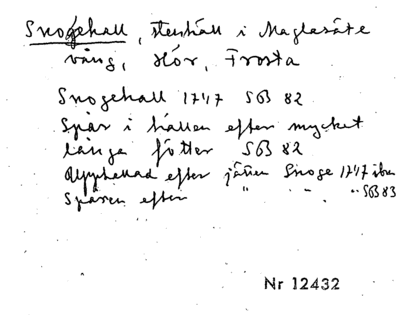 Snogehall, stenhäll i Maglasäte
vång, Hör, Frosta
Snogehall 1747 SGB 82
Spår i hällen efter mycket
långa fötter SGB 82
Uppkallad efter jätten Snoge 1747 ibm
Spåren efter " " " SGB 83
Nr 12432